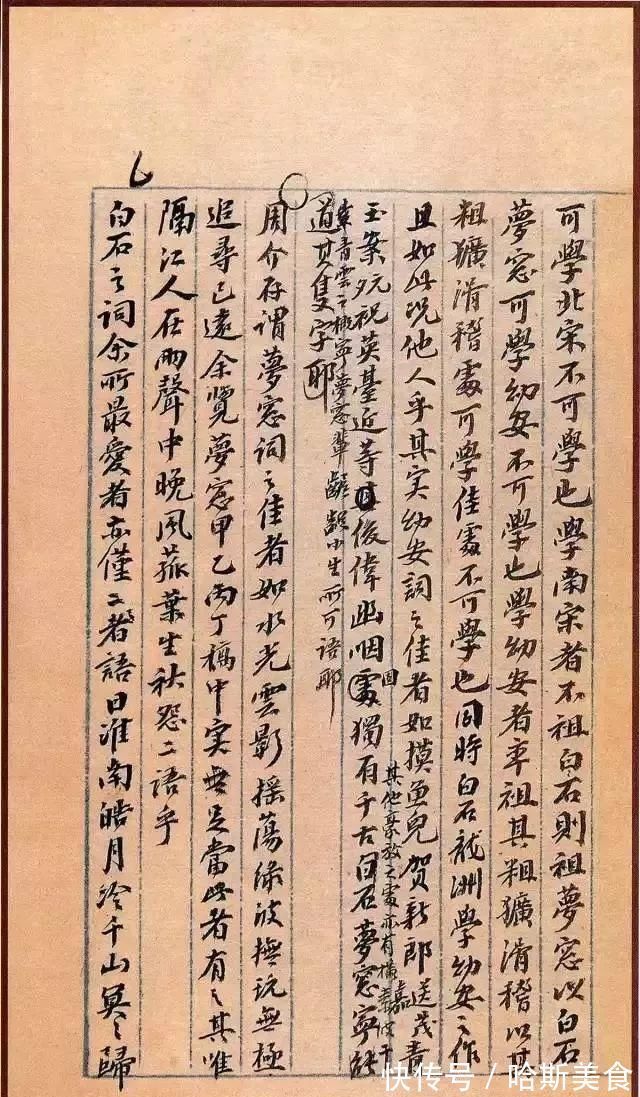 可學北宋不可學也學南宋者不祖白石則祖夢窓以白石
夢窓可學幼安不可學也學幼安者率祖其粗獷滑稽以其
粗獷滑稽處可學佳處不可學也同時白石龍洲學幼安之作
且如此況他人乎其实幼安詞之佳者如摸魚兒賀新郎送茂嘉青
玉案祝英臺近等俊偉幽咽固獨有千古白石夢窓寧能
其他豪放之處亦有橫素波干
青雲之概寧夢窓輩齷齪小生所可語耶
道其隻字耶
周介存謂夢窓詞之佳者如水光雲影搖蕩綠波撫玩無極
追尋已遠余覽夢窓甲乙丙丁稿中实無足當此者有之其唯
隔江人在雨聲中晚風菰葉生秋怨二語乎
白石之詞余所最愛者亦僅二語曰淮南皓月冷千山冥〻歸
快传号/哈斯美食